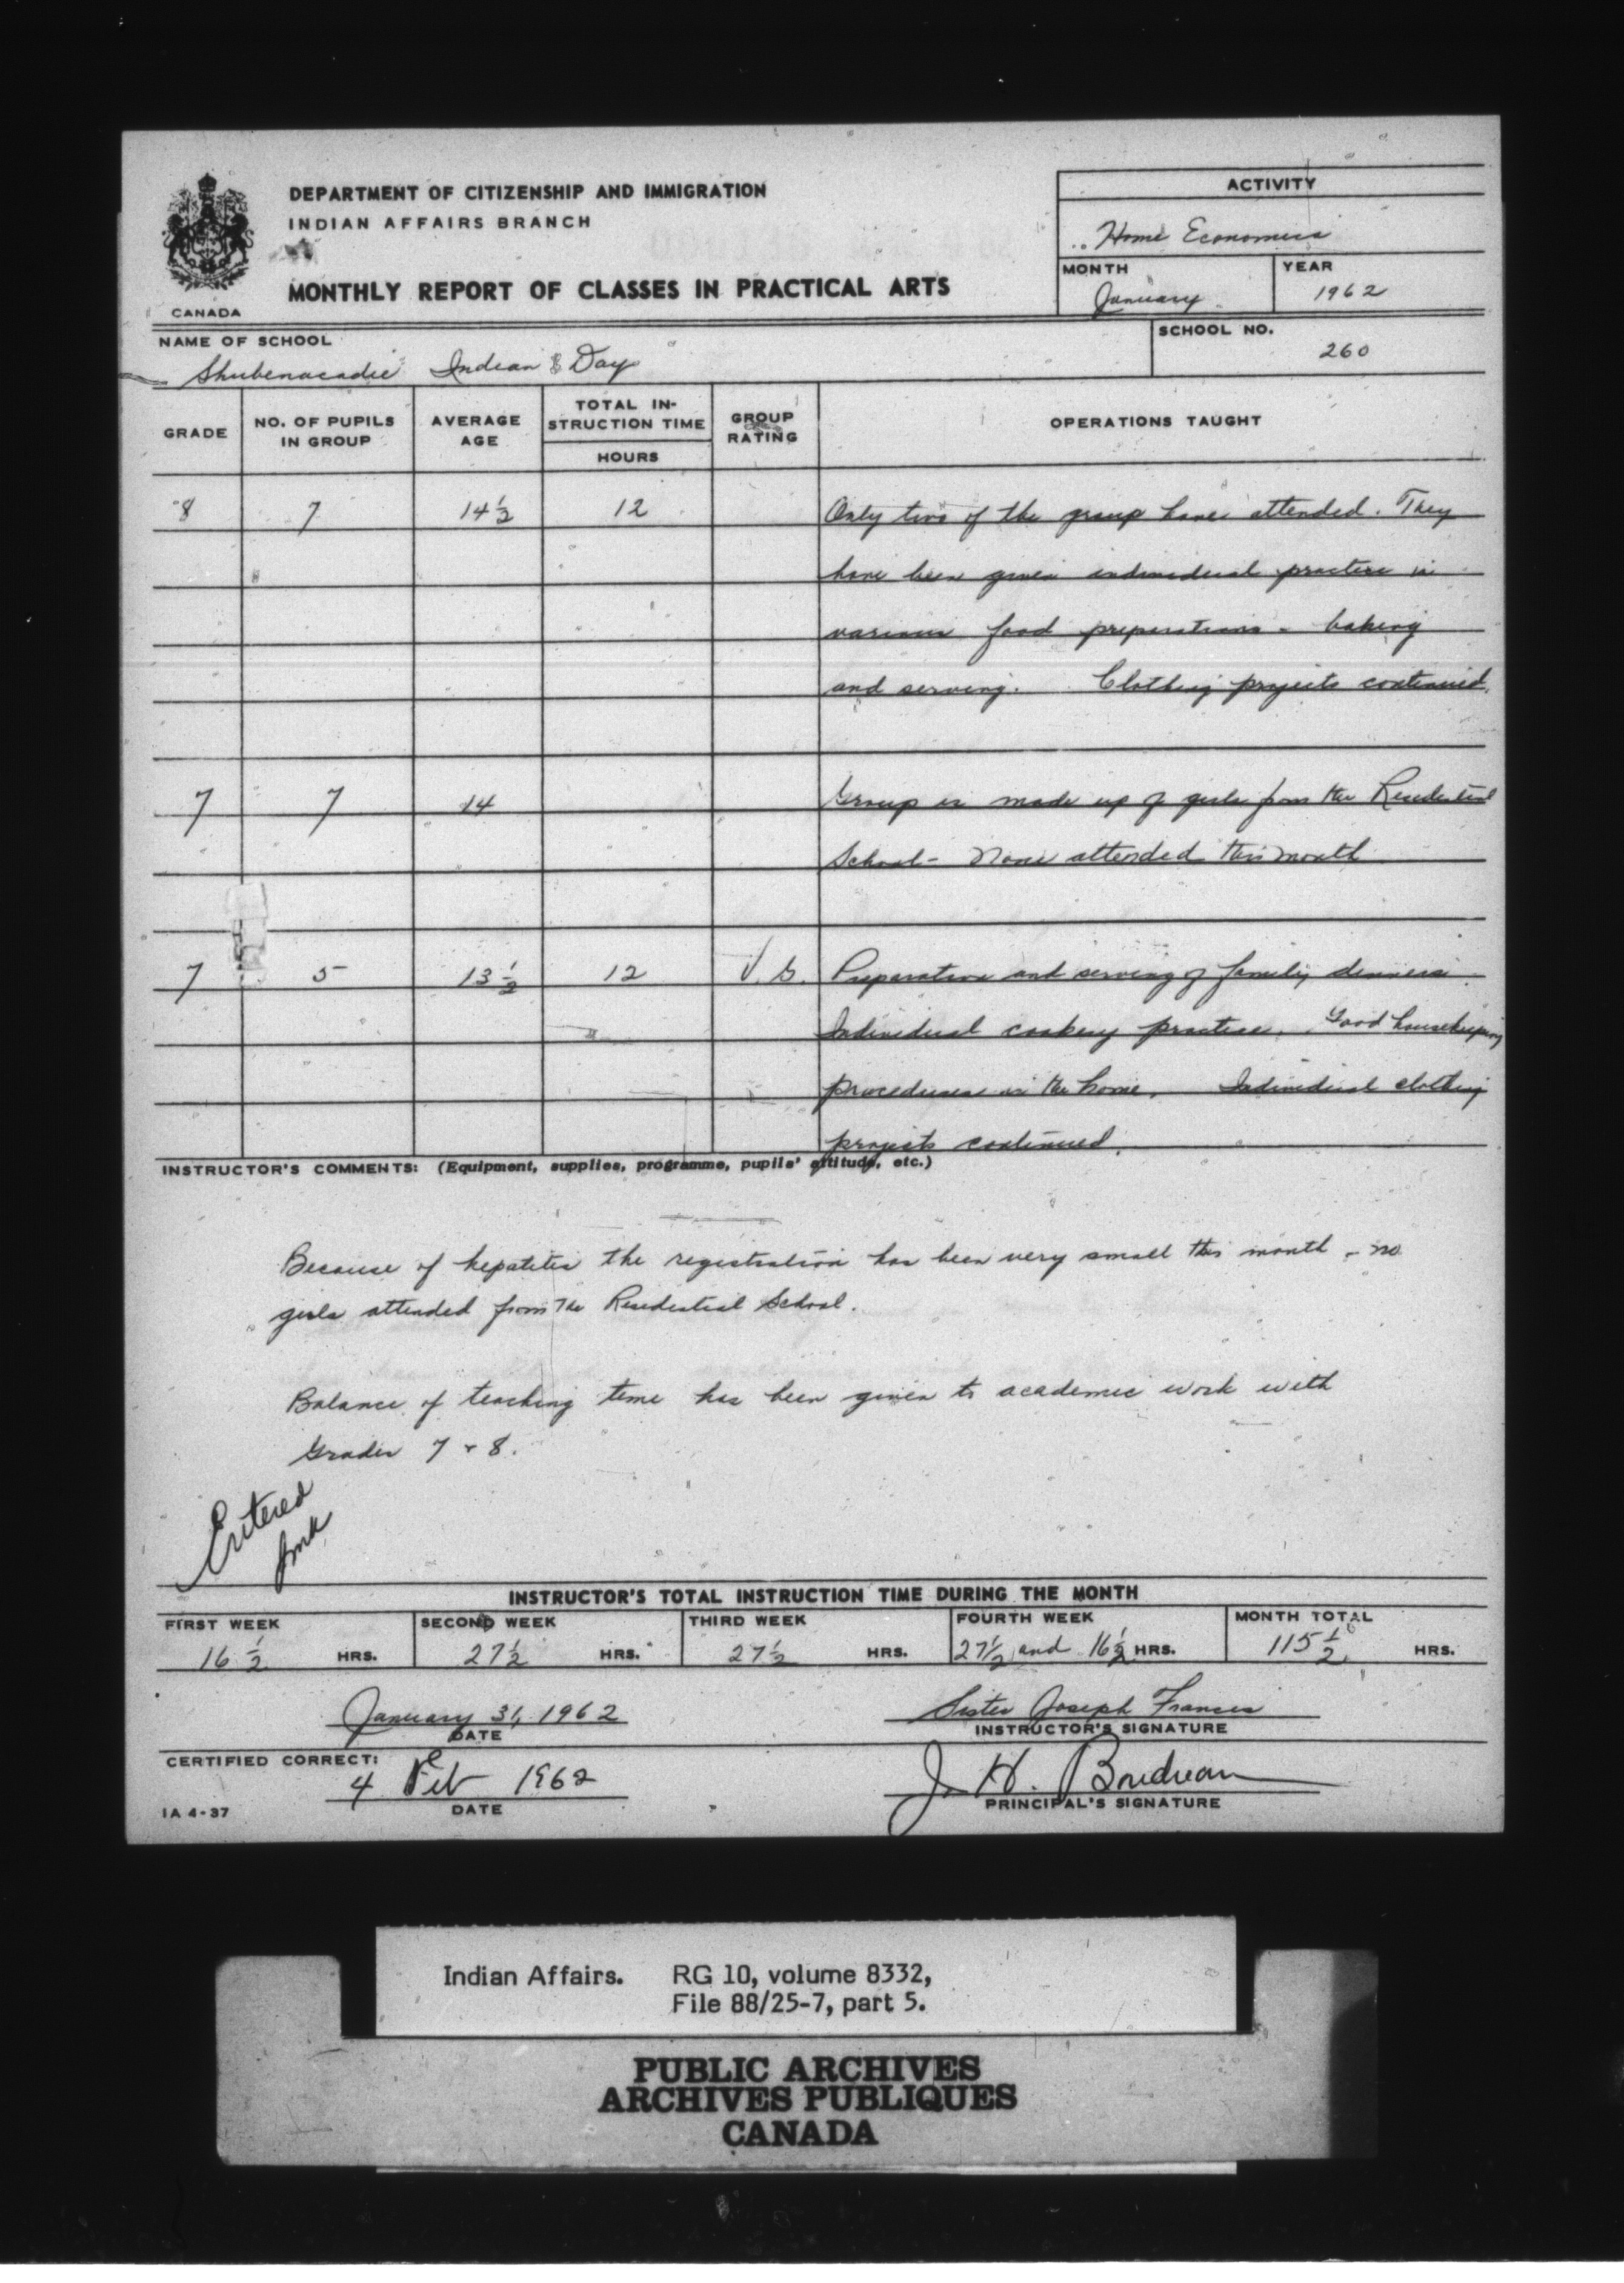 DEPARTMENT OF CITIZENSHIP AND IMMIGRATION
INDIAN AFFAIRS BRANCH
MONTHLY REPORT OF CLASSES IN PRACTICAL ARTS
CANADA
ACTIVITY
Home Economics
MONTH
January
YEAR
1962
NAME OF SCHOOL
Shubenacadie Indian Day
SCHOOL NO.
260
GRADE
NO. OF PUPILS IN GROUP
AVERAGE AGE
TOTAL IN-STRUCTION TIME
HOURS
GROUP RATING
OPERATIONS TAUGHT
8 7 14 1/2 12 Only two of the group have attended. They
have been given individual practice in
various food preparations - baking
and serving. Clothing projects continued.
7 7 14 Group is made up of girls from the Residential
School - None attended this month
7 5 13 1/2 12 V.G. Preparation and serving of family dinners.
Individual cookery practice. Good housekeeping
procedures in the home. Individual clothing
projects continued.
INSTRUCTOR'S COMMENTS: (Equipment, supplies, programme, pupils' attitude, etc.)
Because of hepatitis the registration has been very small this month - no
girls attended from the Residential School.
Balance of teaching time has been given to academic work with
Grades 7 + 8.
Entered
INSTRUCTOR'S TOTAL INSTRUCTION TIME DURING THE MONTH
FIRST WEEK
16 1/2 HRS.
SECOND WEEK
27 1/2 HRS.
THIRD WEEK
27 1/2 HRS.
FOURTH WEEK
27 1/2 and 16 1/2 HRS.
MONTH TOTAL
115 1/2 HRS.
January 31, 1962
DATE
Sister Joseph Francis
INSTRUCTOR'S SIGNATURE
CERTIFIED CORRECT:
4 Feb 1962
DATE
J. H. Boudreau
PRINCIPAL'S SIGNATURE
IA 4-37
Indian Affairs. RG 10, volume 8332,
File 88/25-7, part 5.
PUBLIC ARCHIVES
ARCHIVES PUBLIQUES
CANADA